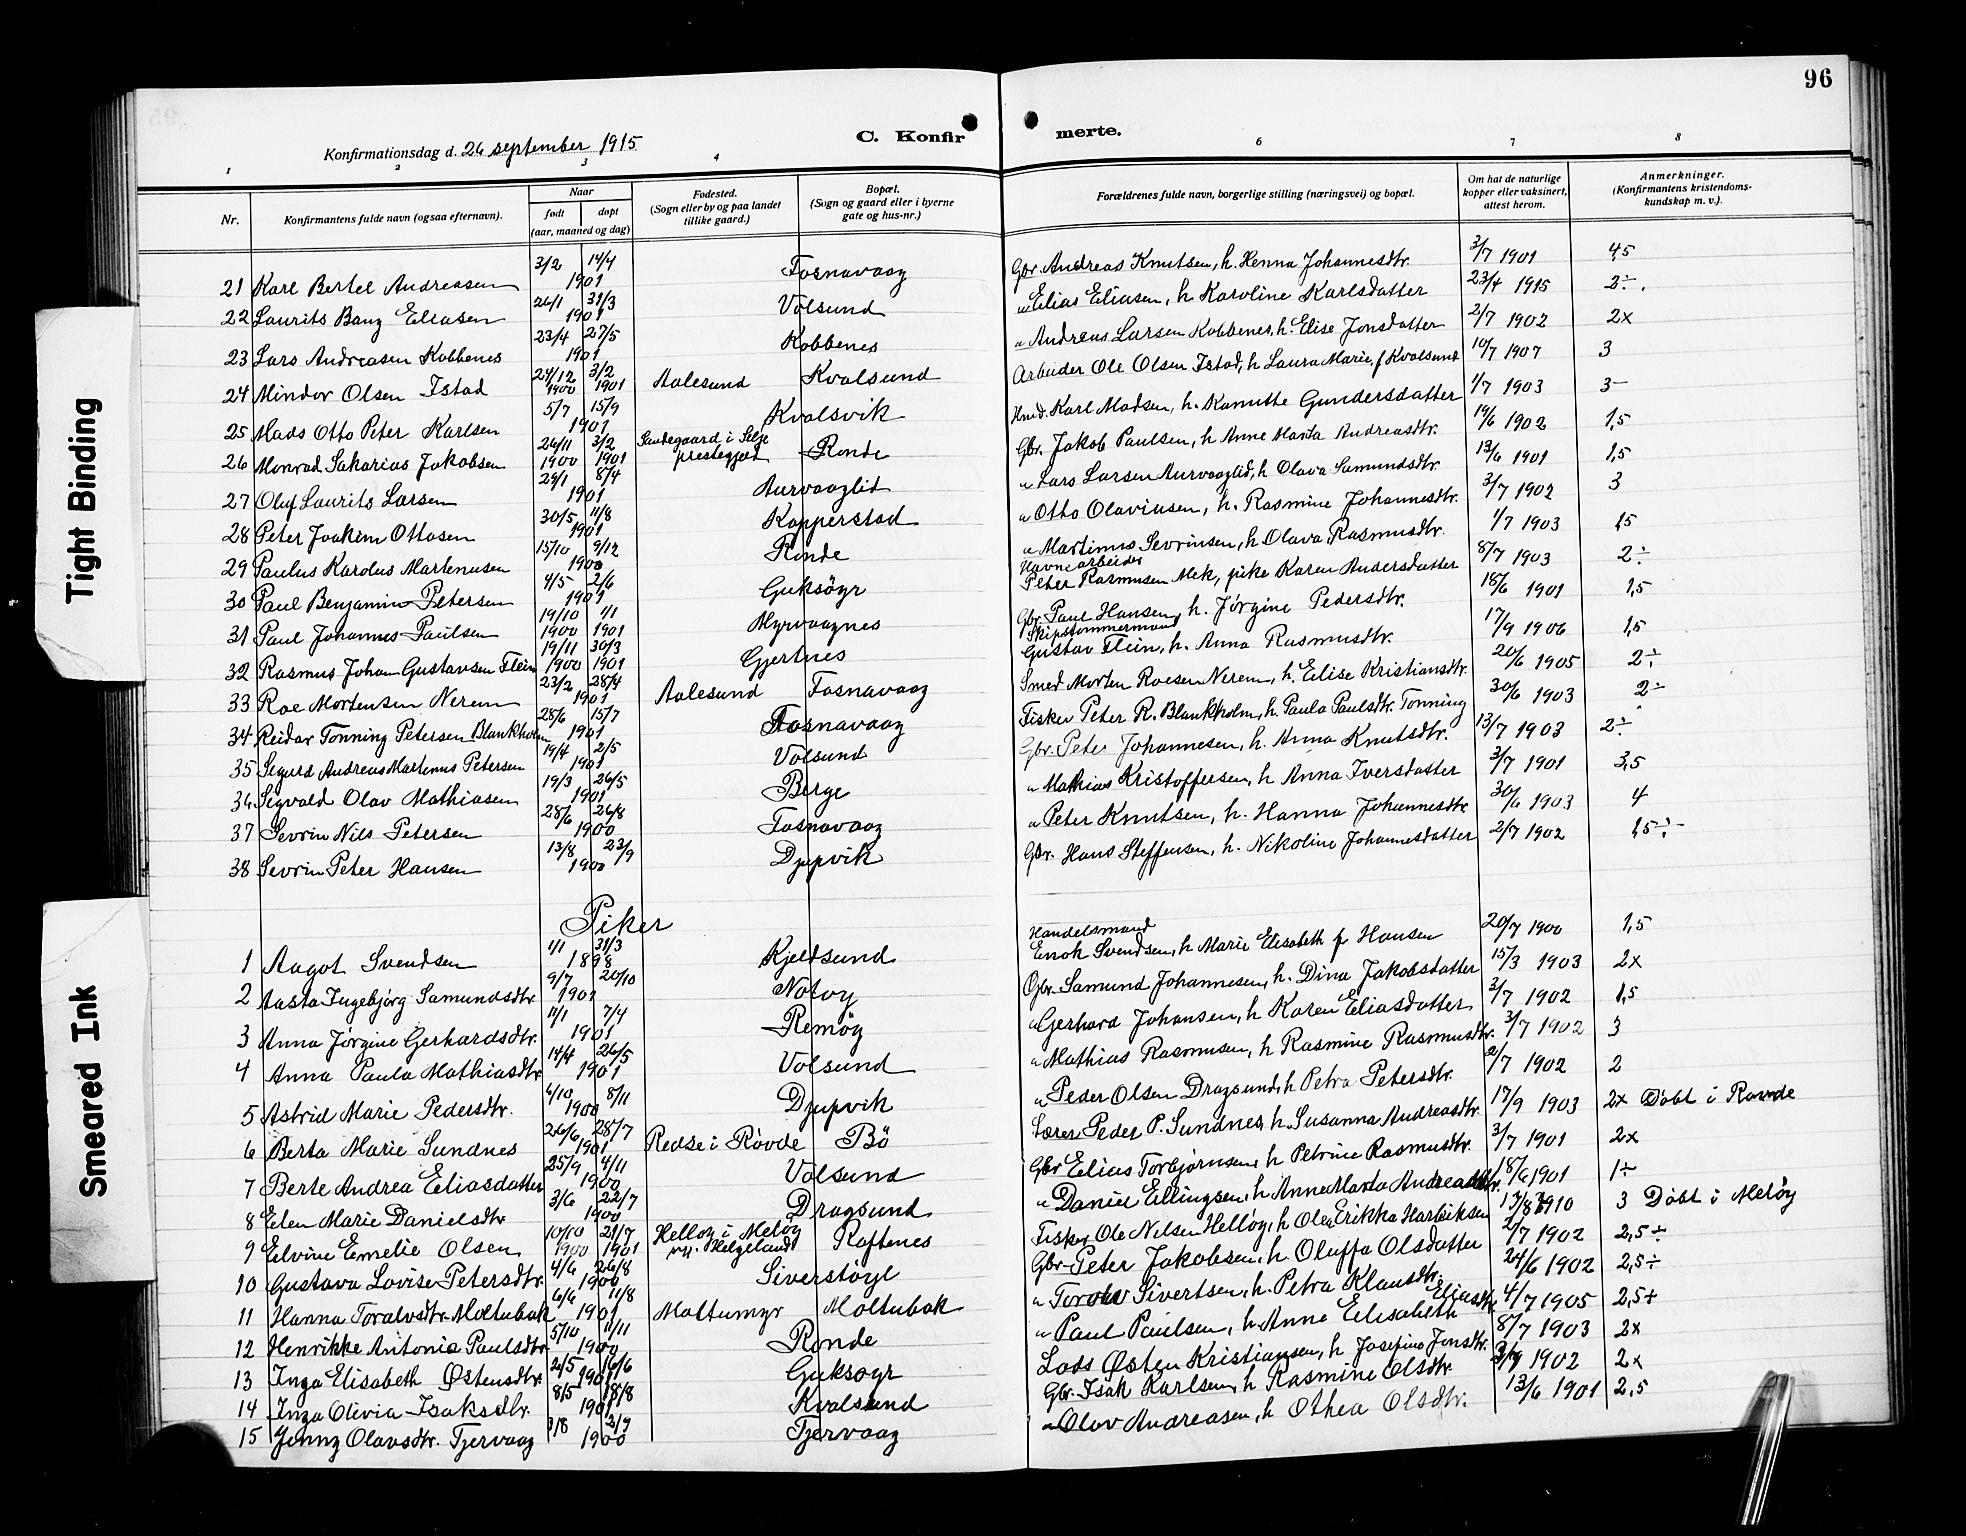 96
C. Konfirmerte.
Konfirmationsdag d. 26 september 1915
1 2 3 4 5 6 7 8
Nr. Konfirmantens fulde navn (ogsaa efternavn). Naar født døpt (aar, maaned og dag) Fødested. (Sogn eller by og paa landet tillike gaard.) Bopæl. (Sogn og gaard eller i byerne gate og hus-nr.) Forældrenes fulde navn, borgerlige stilling (næringsvei) og bopæl. Om hat de naturlige kopper eller vaksinert, attest herom. Anmerkninger. (Konfirmantens kristendoms-kundskap m. v.).
21 Karl Bertel Andreasen 3/2 14/4 1901 Fosnavaag Gbr. Andreas Knutsen, h. Henna Johannesdtr. 3/7 1901 4,5
22 Laurits Banz Eliasen 26/1 31/3 1901 Volsund " Elias Eliasen, h Karoline Karlsdatter 23/4 1915 2÷.
23 Lars Andreasen Kobbenes 23/4 27/5 1901 Kobbenes " Andreas Larsen Kobbenes, h. Elise Jonsdatter 2/7 1902 2x
24 Mindor Olsen Istad 24/12 1900 3/2 1901 Aalesund Kvalsund Arbeider Ole Olsen Istad, h Laura Marie, f Kvalsund 10/7 1907 3
25 Mads Otto Peter Karlsen 5/7 15/9 1901 Kvalsvik Hmd. Karl Madsen, h. Kanutte Gundersdatter 1/7 1903 3-
26 Monrad Sakarias Jakobsen 26/11 1900 3/2 1901 Sandegaard i Selje prestegjeld Ronde Gbr. Jakob Paulsen, h Anne Marta Andreasdtr. 19/6 1902 1,5
27 Oluf Laurits Larsen 29/1 8/4 1901 Aurvaaglid " Lars Larsen Aurvaaglid, h Olava Samundsdtr. 13/6 1901 1,5
28 Peter Joakim Ottosen 30/5 11/8 1901 Kopperstad " Otto Olavinsen, h. Rasmine Johannesdtr. 3/7 1902 3
29 Paulus Karolus Martenusen 15/10 9/12 1900 Ronde " Martinus Sevrinsen, h Olava Rasmusdtr. 1/7 1903 1,5
30 Paul Benjamin Petersen 4/5 2/6 1901 Guksöyr Havnearbeider Peter Rasmusen Mek, pike Karen Andersdatter 8/7 1903 2÷
31 Paul Johannes Paulsen 19/10 1900 1/1 1901 Myrvaagnes Gbr. Paul Hansen, h. Jørgine Pedersdtr. 18/6 1901 1,5
32 Rasmus Johan Gustavsen Flein 19/11 1900 30/3 1901 Gjertnes Skipstømmermand Gustav Flein, h. Anna Rasmusdtr. 17/9 1906 1,5
33 Roe Mortensen Nerem 23/2 28/4 1901 Aalesund Fosnavaag Smed Morten Roesen Nerem, h. Elise Kristiansdtr. 20/6 1905 2÷
34 Reidar Tonning Petersen Blankholm 25/6 15/7 1901 Fosnavaag Fisker Peter R. Blankholm, h. Paula Paulsdtr. Tonning 30/6 1903 2÷
35 Sigurd Andreas Martenus Petersen 19/4 2/5 1901 Volsund Gbr. Peter Johannesen, h. Anna Knutsdtr. 13/7 1903 2÷
36 Sigvald Olav Mathiasen 19/3 26/5 1901 Berge " Mathias Kristoffersen, h Anna Iversdatter 3/7 1901 3,5
37 Sevrin Nils Petersen 28/6 26/8 1900 Fosnavaag " Peter Knutsen, h. Hanna Johannesdtr 30/6 1903 4
38 Sevrin Peter Hansen 13/8 23/9 1900 Djupvik Gbr. Hans Steffensen, h. Nikoline Johannesdatter 2/7 1902 1,5÷-
Piker
1 Aagot Svendsen 1/1 31/3 1898 Kjeldsund Handelsmand Enok Svendsen, h Marie Elisabeth f Hansen 20/7 1900 1,5
2 Aasta Ingebjørg Samundsdtr 9/7 20/10 1901 Notøy Gbr. Samund Johannesen, h. Dina Jakobsdatter 15/3 1903 2x
3 Anna Jørgine Gerhardsdtr. 11/1 7/4 1901 Remøy " Gerhard Johansen, h Karen Eliasdatter 3/7 1902 1,5
4 Anna Paula Mathiasdtr 14/4 26/5 1901 Volsund " Mathias Rasmusen, h Rasmine Rasmusdtr. 3/7 1902 3
5 Astrid Marie Pedersdtr. 6/10 8/11 1900 Djupvik " Peder Olsen Dragsund, h Petra Petersdtr. 2/7 1902 2
6 Berta Marie Sundnes 26/6 28/7 1901 Redse i Røvde Bö Lærer Peder P. Sundnes, h Susanna Andreasdtr. 17/9 1903 2x Døbt i Rovde
7 Berte Andrea Eliasdatter 25/9 4/11 1900 Volsund Gbr Elias Torbjørnsen, h Petrine Rasmusdtr. 3/7 1901 2x
8 Elen Marie Danielsdtr 3/6 22/7 1900 Dragsund " Daniel Ellingsen, h Anne Marta Andreasdtr. 18/6 1901 1÷
9 Elvine Emelie Olsen 10/10 1900 21/7 1901 Helløy i Meløy Helgeland Raftenes Fisker Ole Nilsen Helløy, h Olea Erikka Harbiksen 13/8 1910 3 Døbt i Meløy
10 Gustava Lovise Petersdtr. 4/6 26/8 1900 Siverstøyl Gbr Peter Jakobsen, h. Oluffa Olsdatter 2/7 1902 2,5÷
11 Hanna Toralvsdtr. Moltubak 6/6 11/8 1901 Moltumyr Moltubak " Toralv Sivertsen, h. Petra Klausdtr. 24/6 1902 2,5÷
12 Henrikke Antonie Paulsdtr 5/10 11/11 1900 Ronde " Paul Paulsen, h Anne Elisabeth Eliasdtr 4/7 1905 2,5+
13 Inga Elisabeth Østensdtr. 2/5 16/6 1901 Guksøyr Lods Østen Kristiansen, h Josefine Jonsdtr. 8/7 1903 2x
14 Inga Olivia Isaksdtr. 8/5 18/8 1901 Kvalsund Gbr. Isak Karlsen, h Rasmine Olsdtr. 1902 2x
15 Jenny Olavsdtr. Tjervaag 3/8 2/9 1900 Tjervaag " Olav Andreasen, h Othea Olsdtr. 13/6 1901 2,5
Tight Binding
Smeared Ink